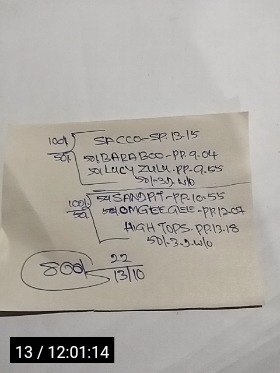 100% SACCO-SP.13.15
50% 50% BARABOO-PP.9.04
50% LUCY ZULU-PP-9.55
50%.3.D.W/O
100% 50% SANDPIT-PP.10.55
50% 50% OMGEEGEE-PP.12.07
HIGH TOPS-PP.13.18
50%.3.D.W/O
800/-
22
13/10
13 / 12:01:14